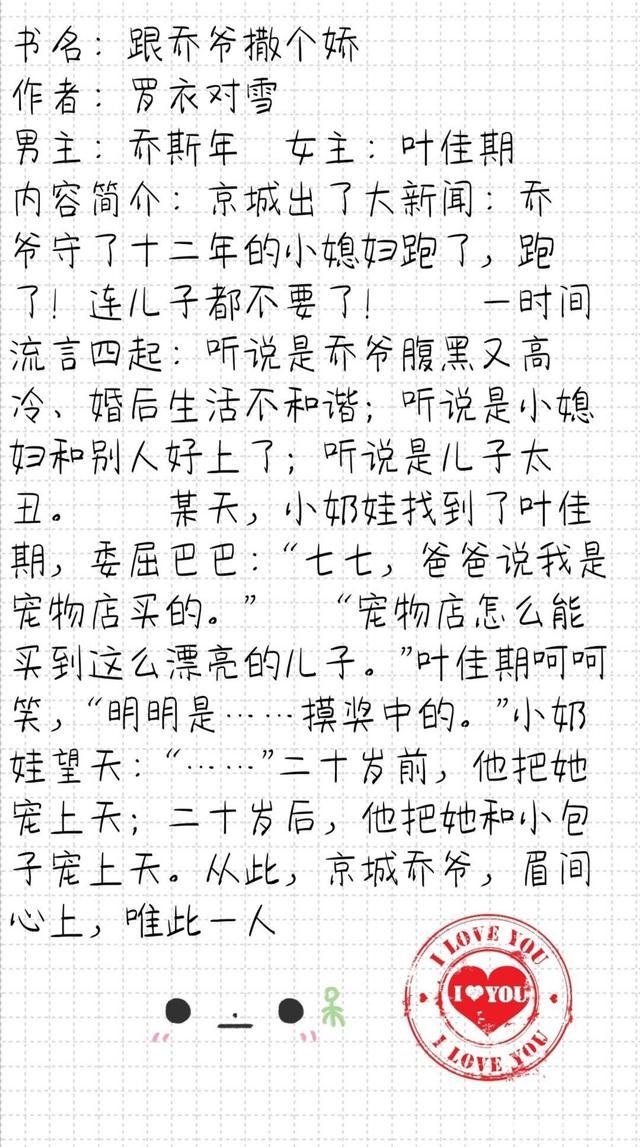 书名：跟乔爷撒个娇
作者：罗衣对雪
男主：乔斯年　女主：叶佳期
内容简介：京城出了大新闻：乔
爷守了十二年的小媳妇跑了，跑
了！连儿子都不要了！　　一时间
流言四起：听说是乔爷腹黑又高
冷、婚后生活不和谐；听说是小媳
妇和别人好上了；听说是儿子太
丑。　　某天，小奶娃找到了叶佳
期，委屈巴巴：“七七，爸爸说我是
宠物店买的。”　　“宠物店怎么能
买到这么漂亮的儿子。”叶佳期呵呵
笑，“明明是……摸奖中的。”小奶
娃望天：“……”二十岁前，他把她
宠上天；二十岁后，他把她和小包
子宠上天。从此，京城乔爷，眉间
心上，唯此一人
呆
I LOVE YOU
I YOU
I LOVE YOU